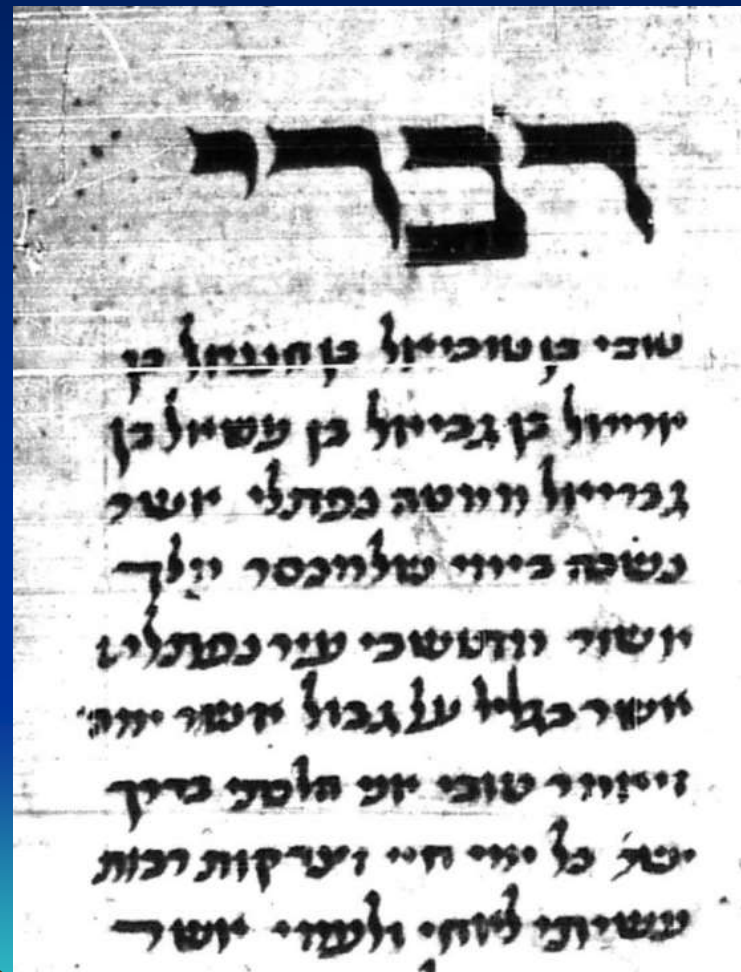 דברי
טובי בן טוביאל בן חננאל בן
אריאל בן גביאל בן עשאל בן
גבריאל ממטה נפתלי אשר
נשבה בימי שלמנסר מלך
אשור מתושבי עיר נפתלי
אשר בגליל על גבול אשר ימה
ויאמר טובי אני הלכתי בדרך
כל ימי חיי וצדקות רבות
עשיתי לאחי ולעמי אשר